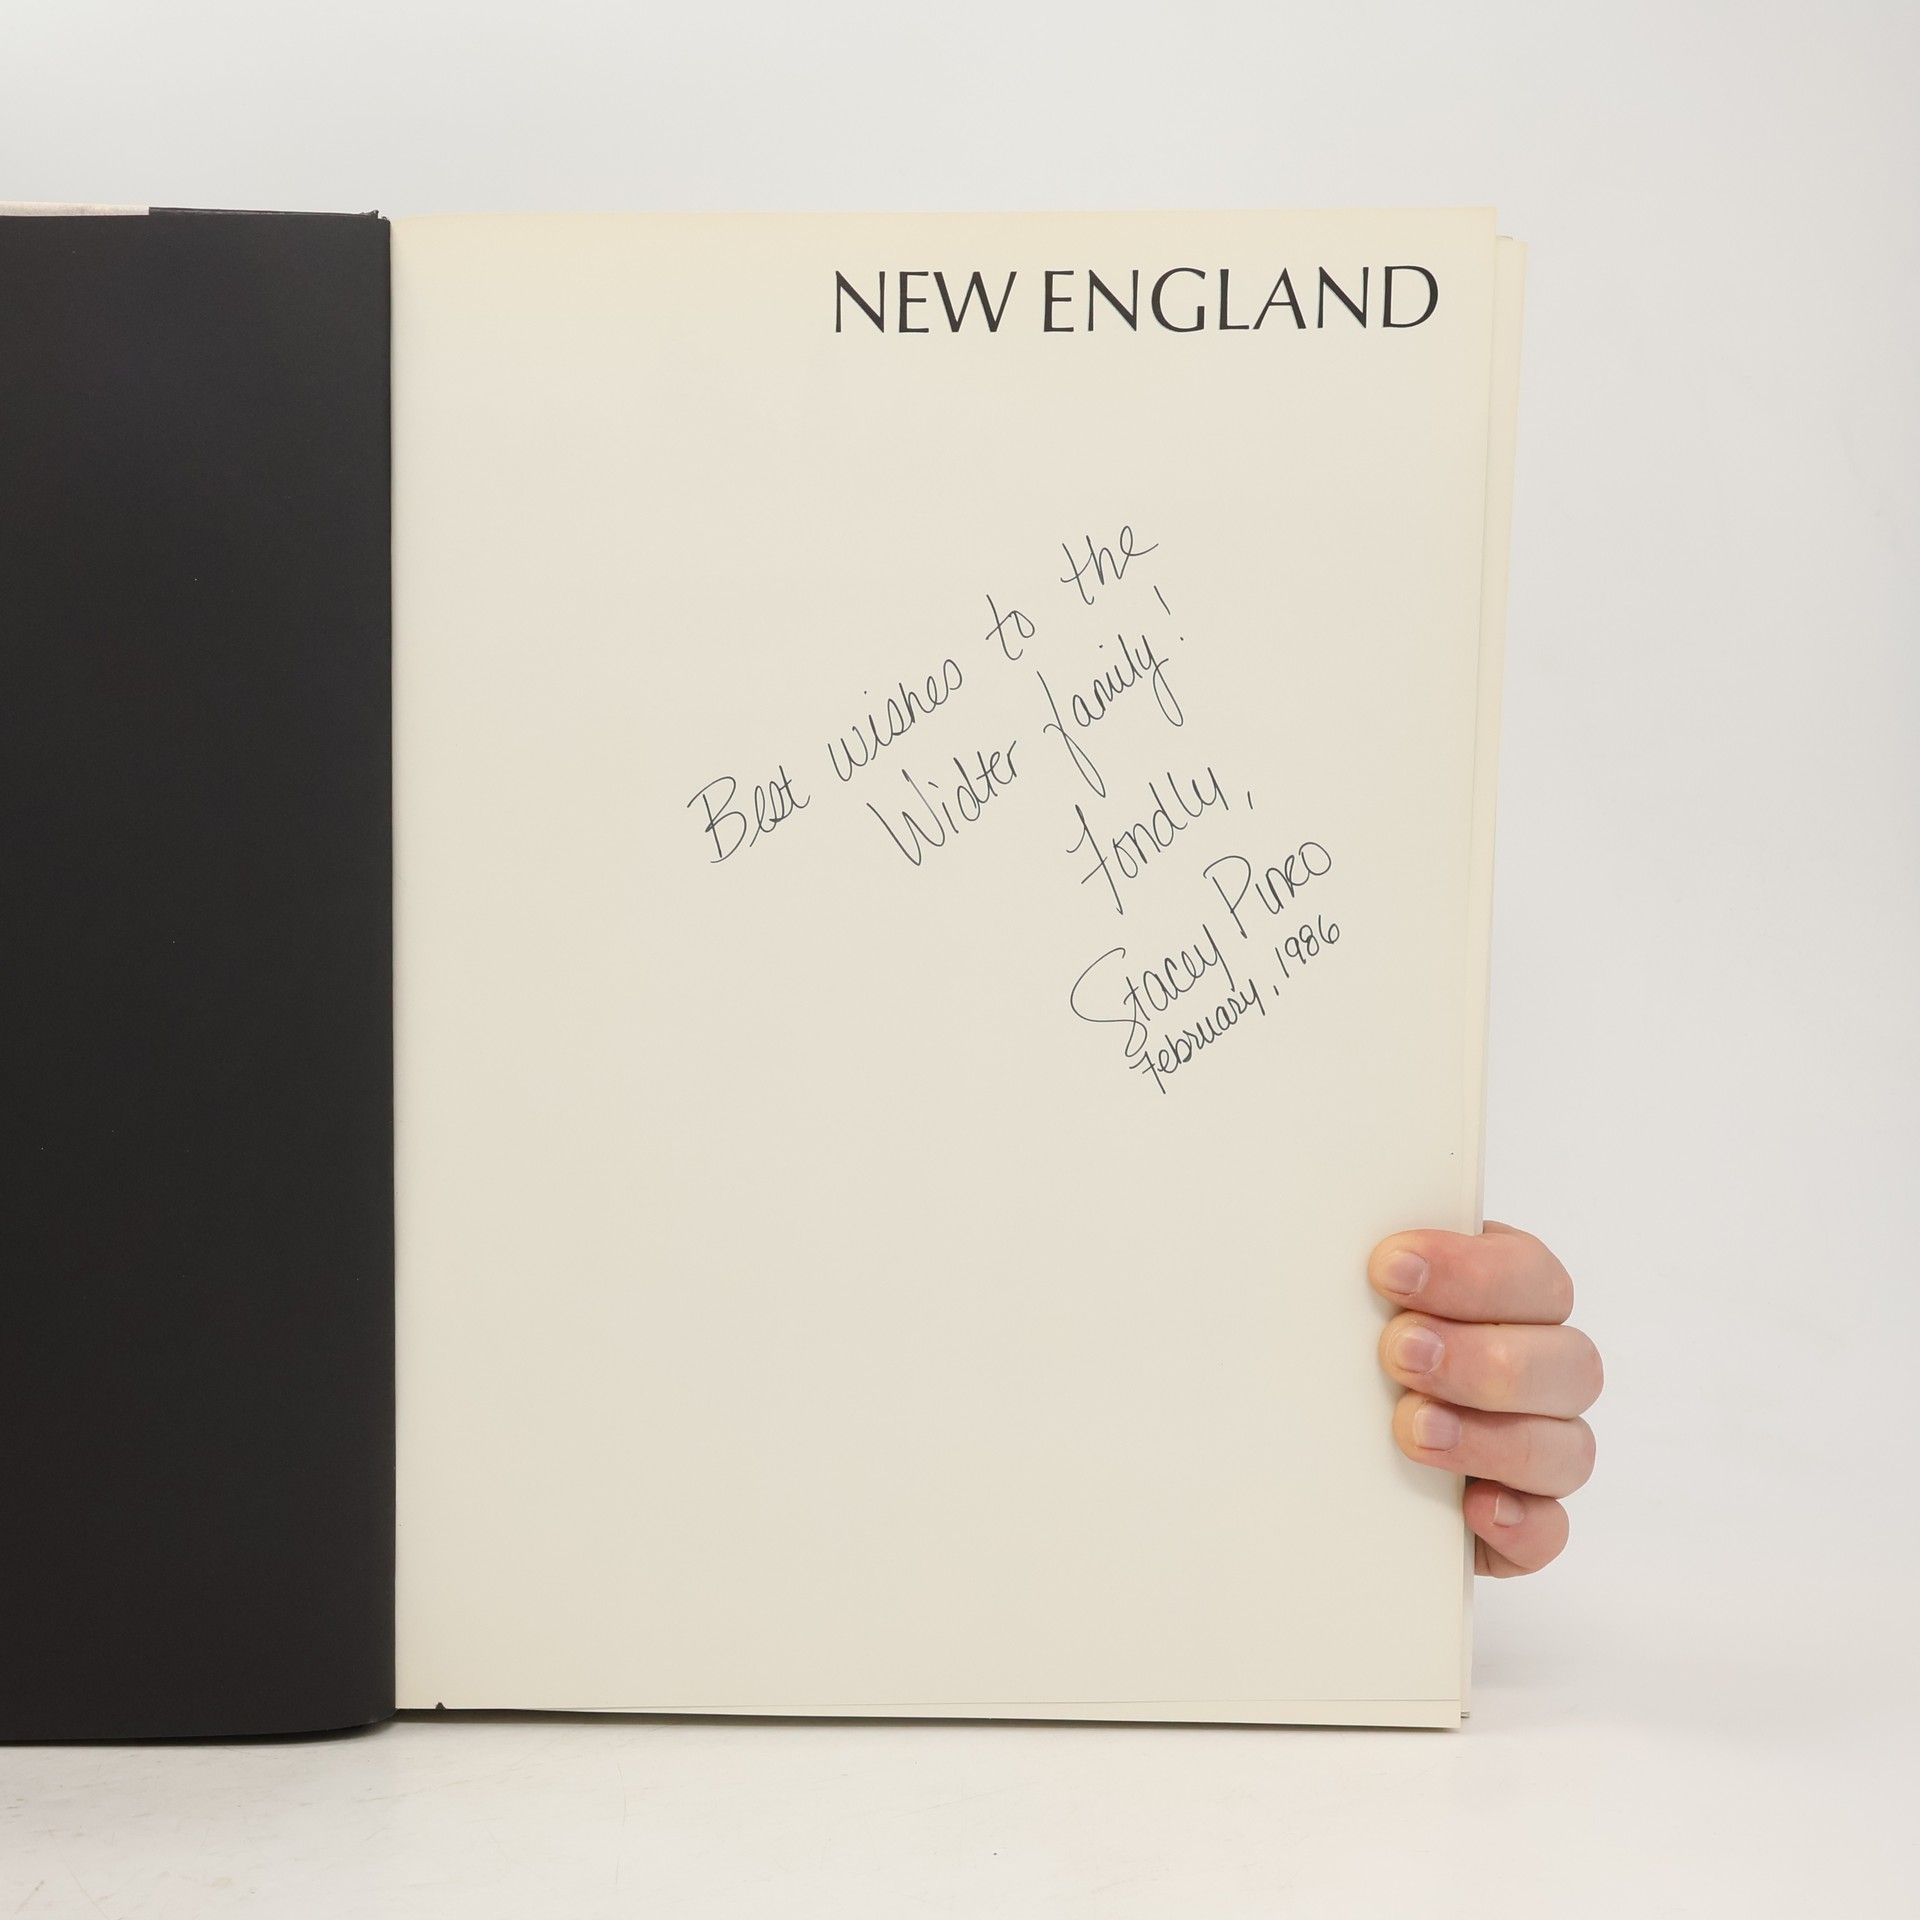 NEW ENGLAND
Best wishes to the
Widter family!
Fondly,
Stacey
February, 1986